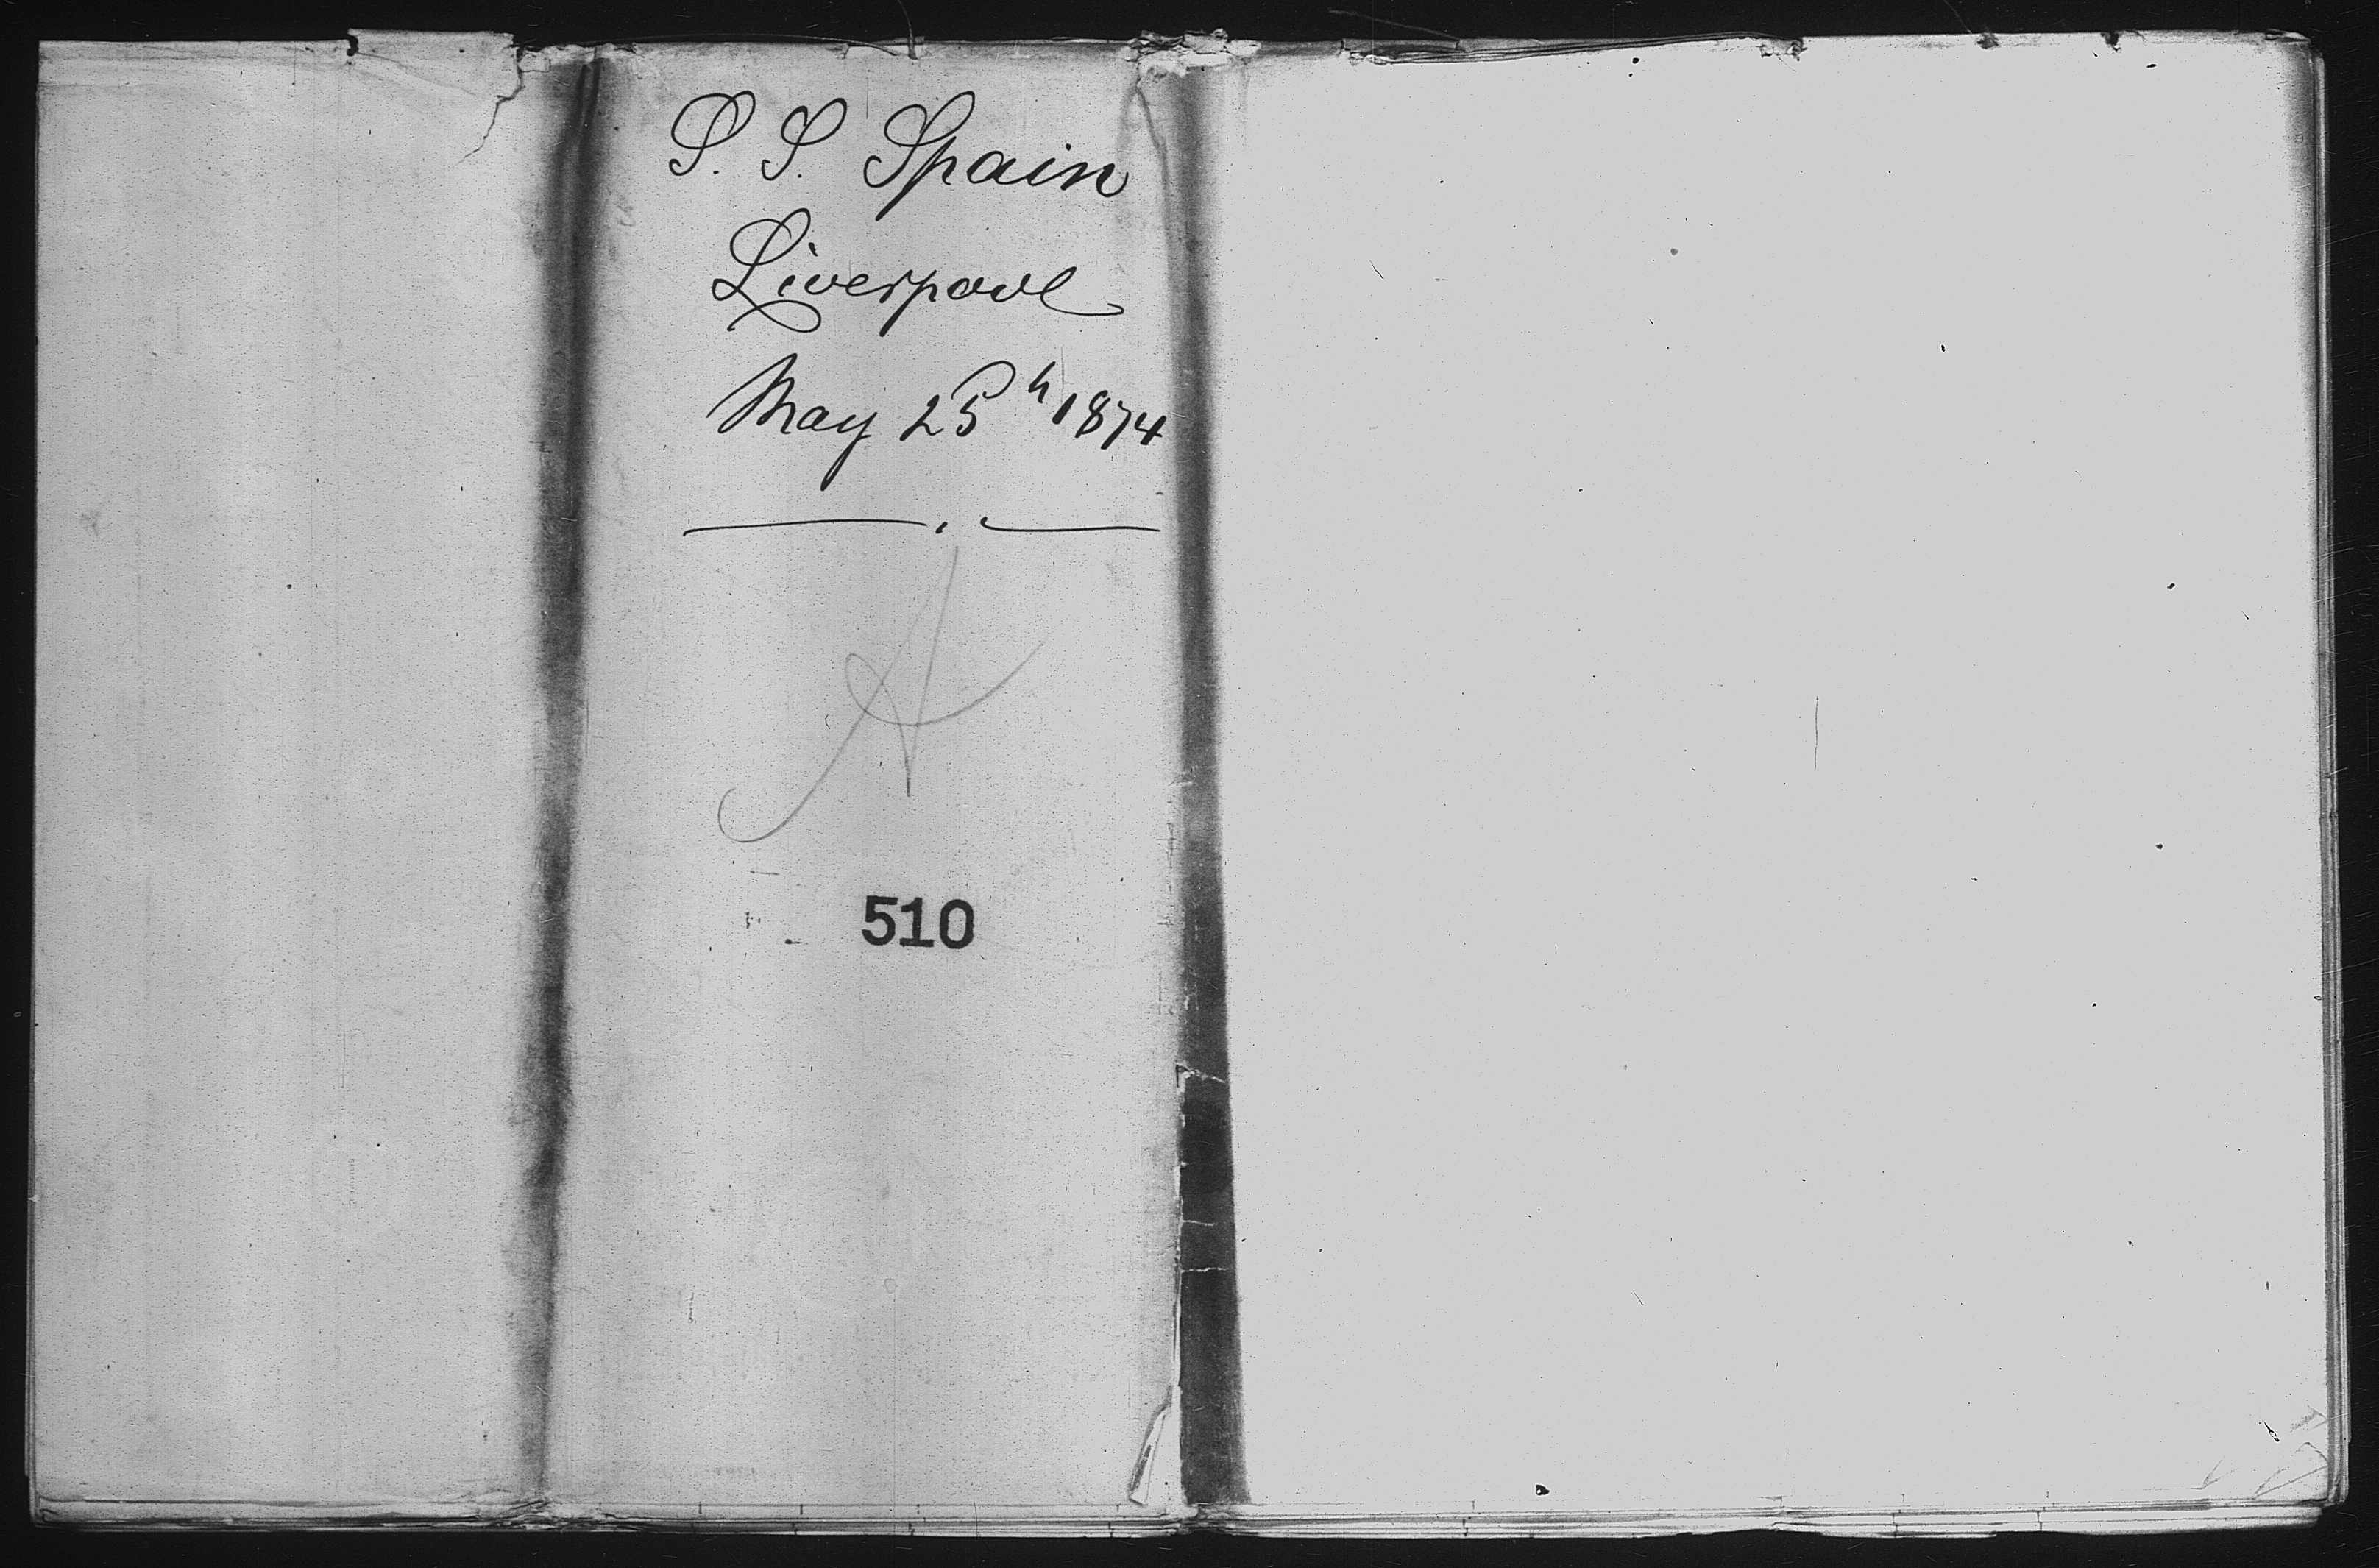 S. S. Spain
Liverpool
May 25h 1874
A
510